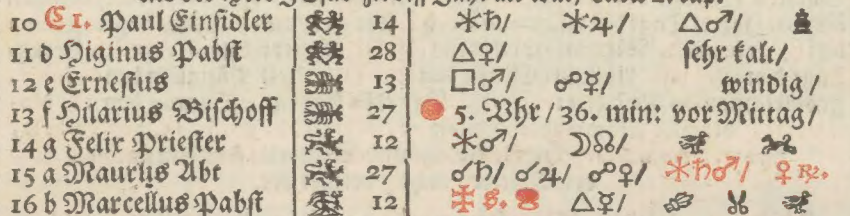 10 C 1. Paul Einsidler 14 ⚹♄/ ⚹♃/ △♂/
11 d Higinus Pabst 28 △♀/ sehr kalt/
12 e Ernestus 13 □♂/ ☍☿/ windig/
13 f Hilarius Bischoff 27 5. Vhr / 36. min: vor Mittag/
14 g Felix Priester 12 ⚹♂/ ☽☊/
15 a Maurus Abt 27 ☌♄/ ☌♃/ ☍♀/ ⚹♄♂/ ♀ ℞.
16 b Marcellus Pabst 12 △☿/